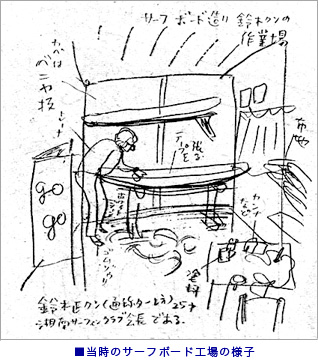 サーフボード造り 鈴木クンの
作業場
カベは
ベニヤ板
テープを
張る
布地
go
go
カンナ
など
塗料
鈴木正クン(通称ターとう)25才
湘南サーフィンクラブ会長である。
■当時のサーフボード工場の様子